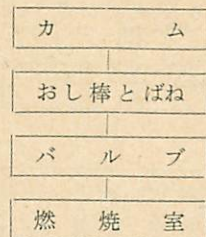 カム
おし棒とばね
バルブ
燃焼室